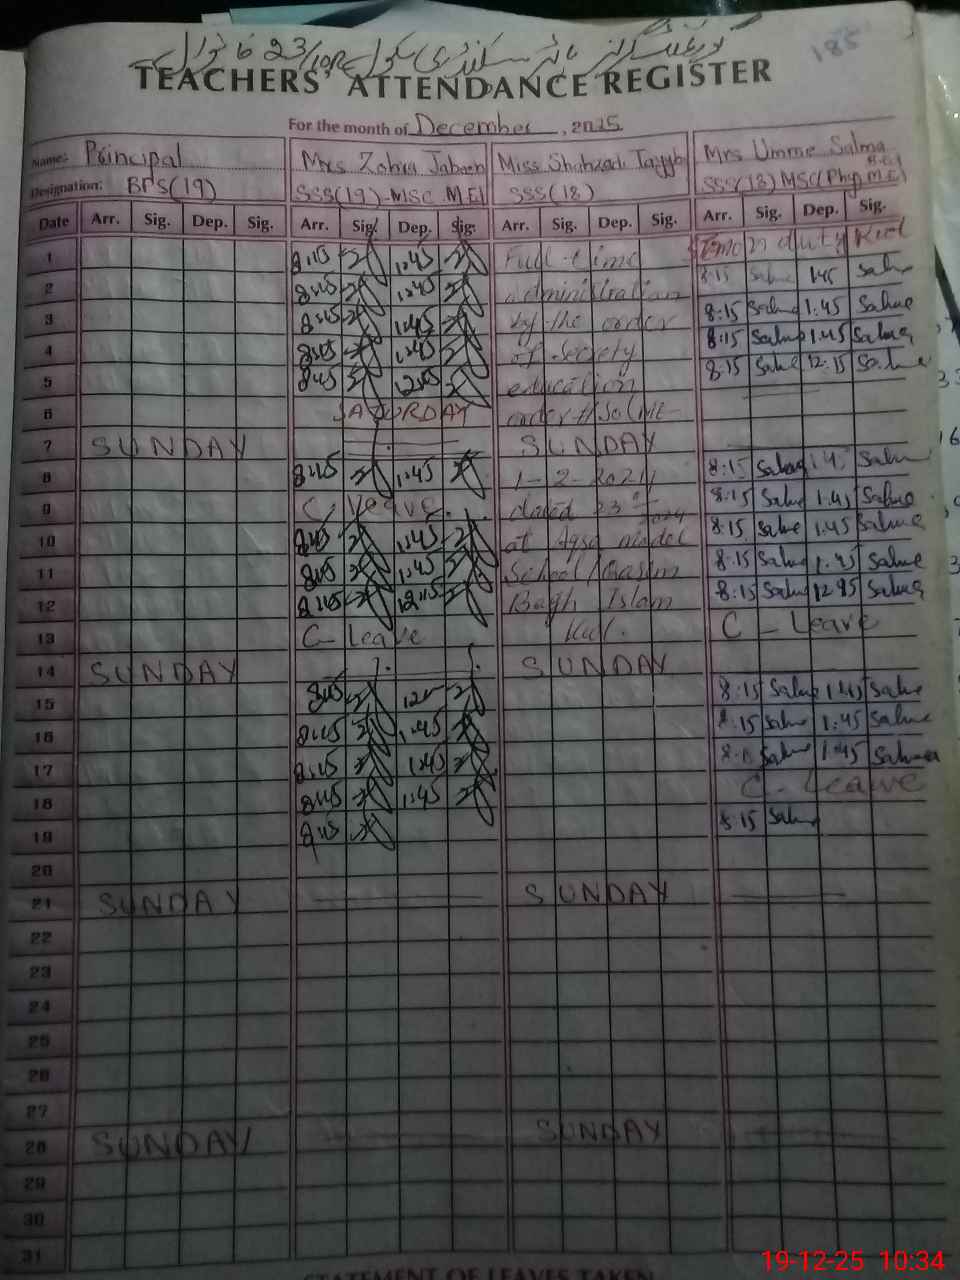 گورنمنٹ گرلز ہائیر سکینڈری سکول
185
TEACHERS' ATTENDANCE REGISTER
For the month of December, 2025
Name: Principal Mrs Zohra Jabeen Miss Shahzadi Tayyba Mrs Umme Salma
Designation: BPS(19) SSS(19)-MSC. M.Ed SSS(18) SSS(18) MSC(Phy) M.Ed
Date Arr. Sig. Dep. Sig. Arr. Sig. Dep. Sig. Arr. Sig. Dep. Sig. Arr. Sig. Dep. Sig.
1 8:15 1:45 Full-time duty
2 8:15 1:45 administration 8:15 Salma 1:45 Salma
3 8:15 1:45 by the order 8:15 Salma 1:45 Salma
4 8:15 1:45 of Secrety 8:15 Salma 1:45 Salma
5 8:15 12:15 education 8:15 Salma 12:15 Salma
6 SATURDAY
7 SUNDAY SUNDAY
8 8:15 1:45 1-2-2024 8:15 Salma 1:45 Salma
9 C, Leave. dated 23 2024 8:15 Salma 1:45 Salma
10 8:15 1:45 at Aqsa model 8:15 Salma 1:45 Salma
11 8:15 1:45 School Qasim 8:15 Salma 1:45 Salma
12 8:15 12:15 Bagh Islam 8:15 Salma Salma
13 C-Leave C-Leave
14 SUNDAY SUNDAY
15 8:15 8:15 Salma 1:45 Salma
16 8:15 1:45 8:15 Salma 1:45 Salma
17 8:15 1:45 Salma 1:45 Salma
18 8:15 1:45 C-Leave
19 8:15 8:15 Salma
20
21 SUNDAY SUNDAY
22
23
24
25
26
27
28 SUNDAY SUNDAY
29
30
31
STATEMENT OF LEAVES TAKEN
19-12-25 10:34